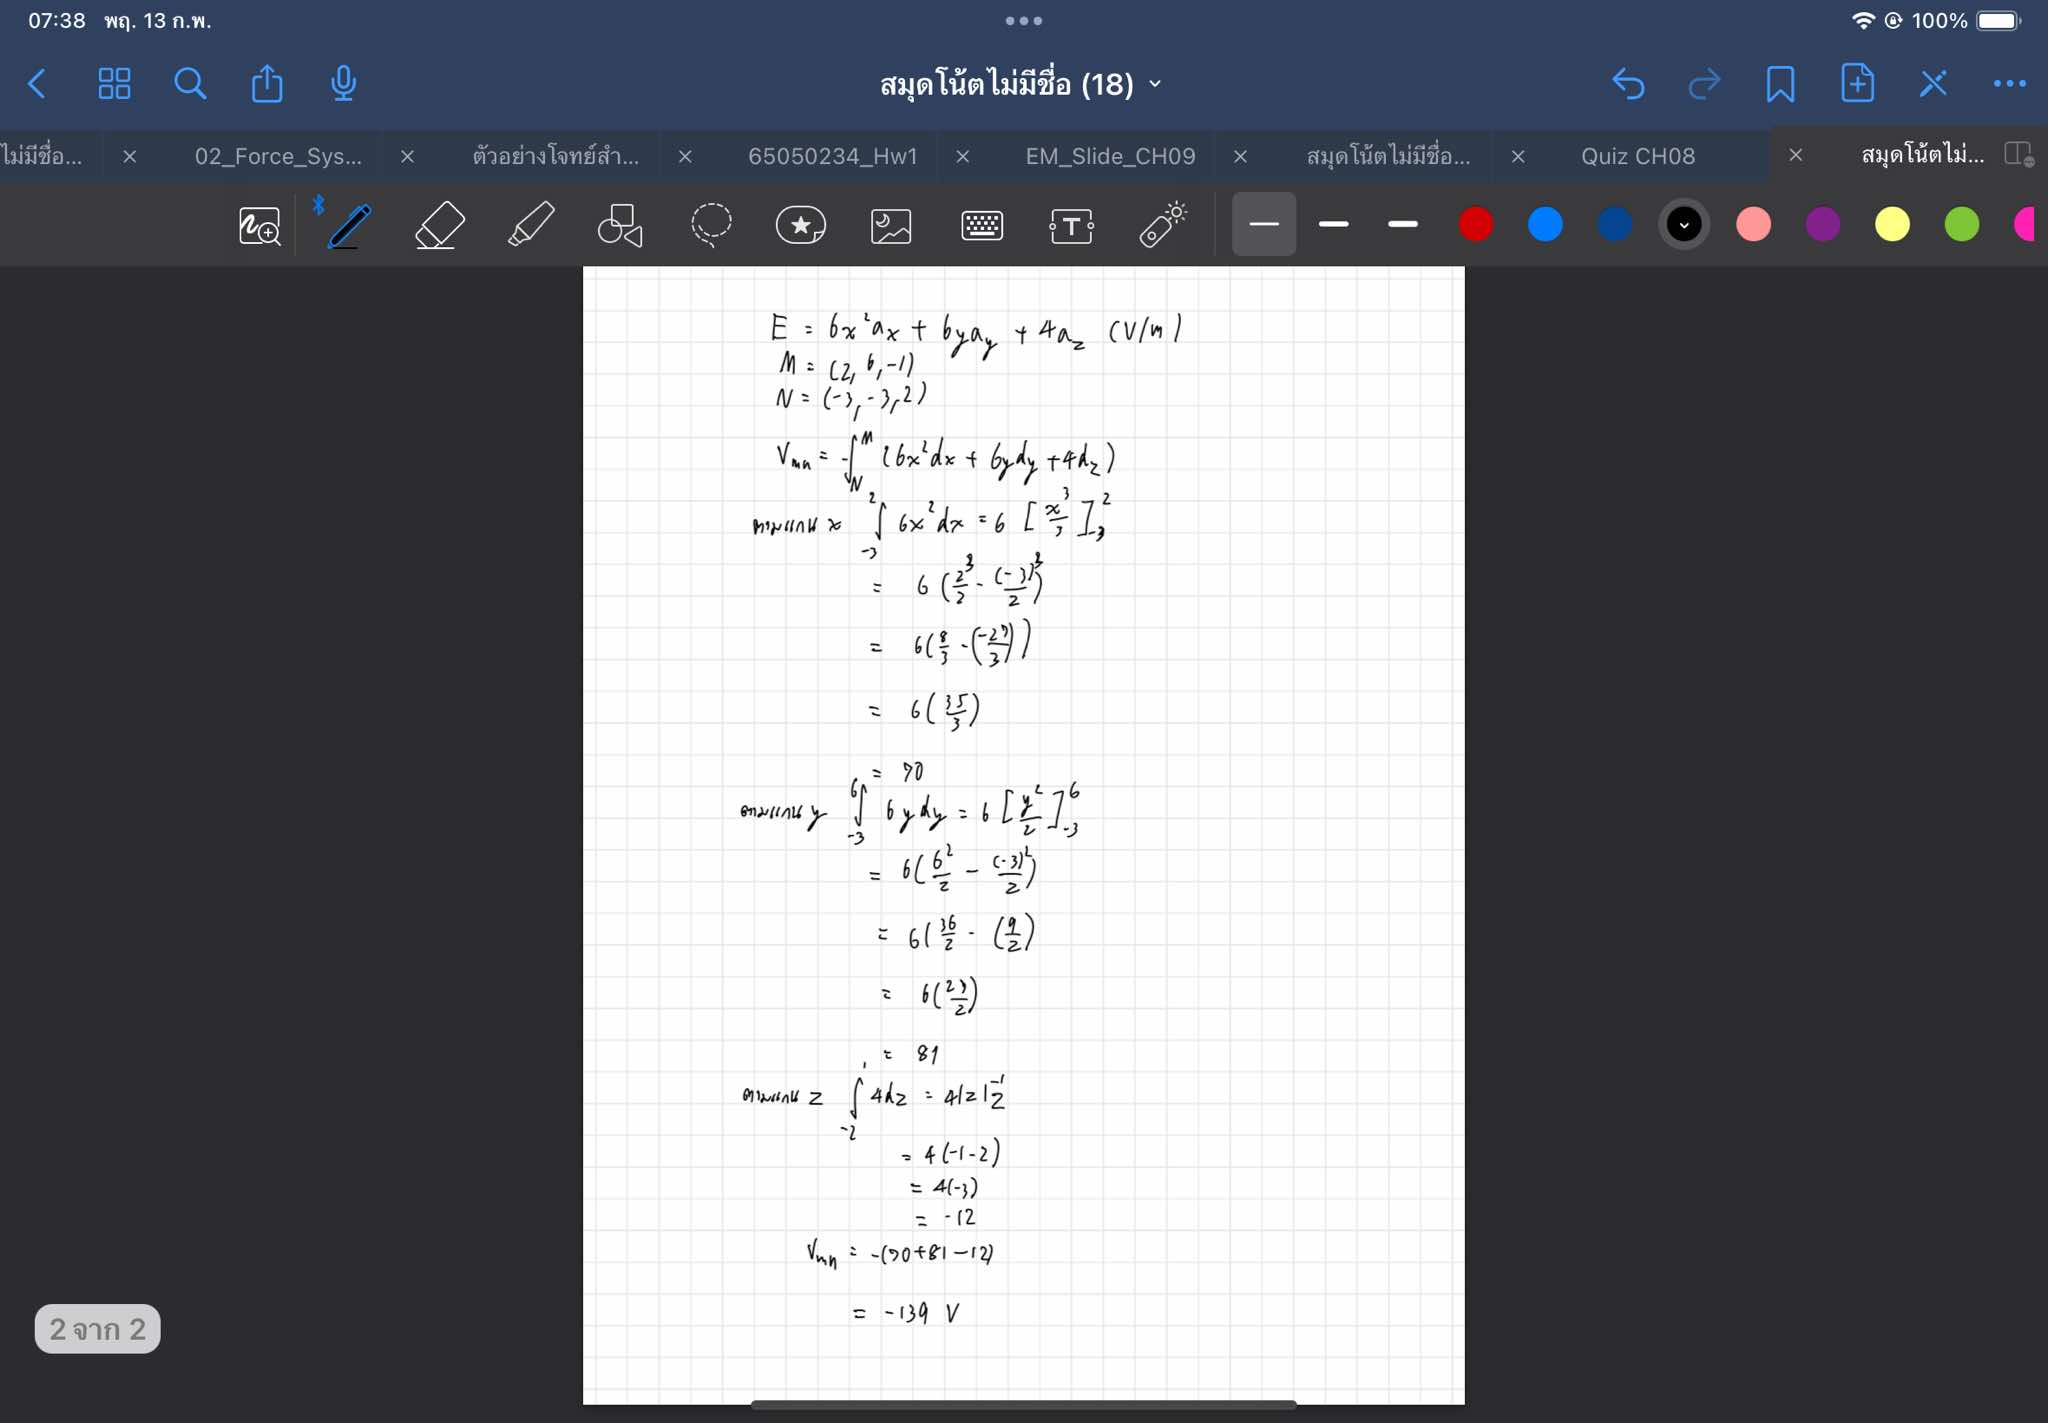 07:38 พฤ. 13 ก.พ.
100%
สมุดโน้ตไม่มีชื่อ (18)
ไม่มีชื่อ...
02_Force_Sys...
ตัวอย่างโจทย์สำ...
65050234_Hw1
EM_Slide_CH09
สมุดโน้ตไม่มีชื่อ...
Quiz CH08
สมุดโน้ตไม่...
E = 6x²aₓ + 6ya_y + 4a_z (V/m)
M = (2, 6, -1)
N = (-3, -3, 2)
V_mn = -∫_N^M (6x²dx + 6ydy + 4dz)
ตามแกน x ∫_-3^2 6x²dx = 6 [x³/3]_-3^2
= 6 (2³/2 - (-3)³/2)
= 6(8/3 - (-27/3))
= 6(35/3)
= 70
ตามแกน y ∫_-3^6 6ydy = 6 [y²/2]_-3^6
= 6(6²/2 - (-3)²/2)
= 6(36/2 - (9/2)
= 6(27/2)
= 81
ตามแกน z ∫_-2^1 4dz = 4|z|_2^-1
= 4(-1-2)
= 4(-3)
= -12
V_mn = -(70+81-12)
= -139 V
2 จาก 2